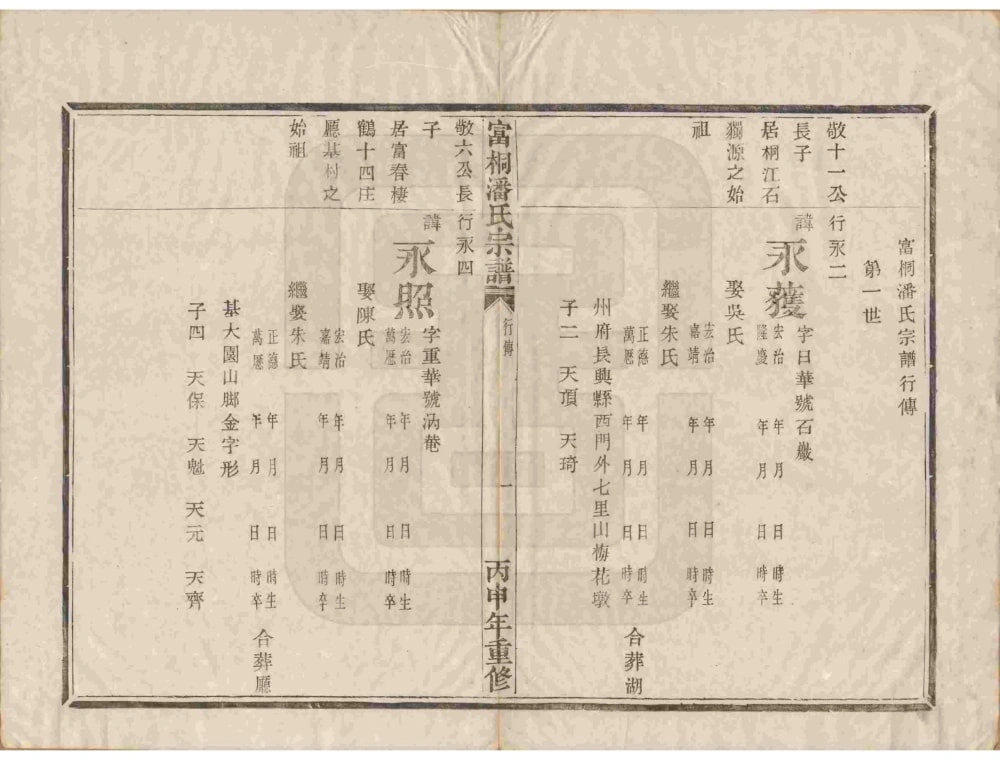 富桐潘氏宗譜行傳
第一世
敬十一公
長子
居桐江石
獨源之始
祖
行永二
諱
永蒦 字日華號石巖
宏治 年 月 日 時生
隆慶 年 月 日 時卒
娶吳氏
宏治 年 月 日 時生
嘉靖 年 月 日 時卒
繼娶朱氏
正德 年 月 日 時生
萬歷 年 月 日 時卒
合葬湖
州府長興縣西門外七里山梅花墩
子二 天頂 天琦
富桐潘氏宗譜
行傳
一
丙申年重修
敬六公長
子
居富春棲
鶴十四庄
廳基村之
始祖
行永四
諱
永照 字重華號汭菴
宏治 年 月 日 時生
萬歷 年 月 日 時卒
娶陳氏
宏治 年 月 日 時生
嘉靖 年 月 日 時卒
繼娶朱氏
正德 年 月 日 時生
萬歷 年 月 日 時卒
合葬廳
基大園山脚金字形
子四 天保 天魁 天元 天齊